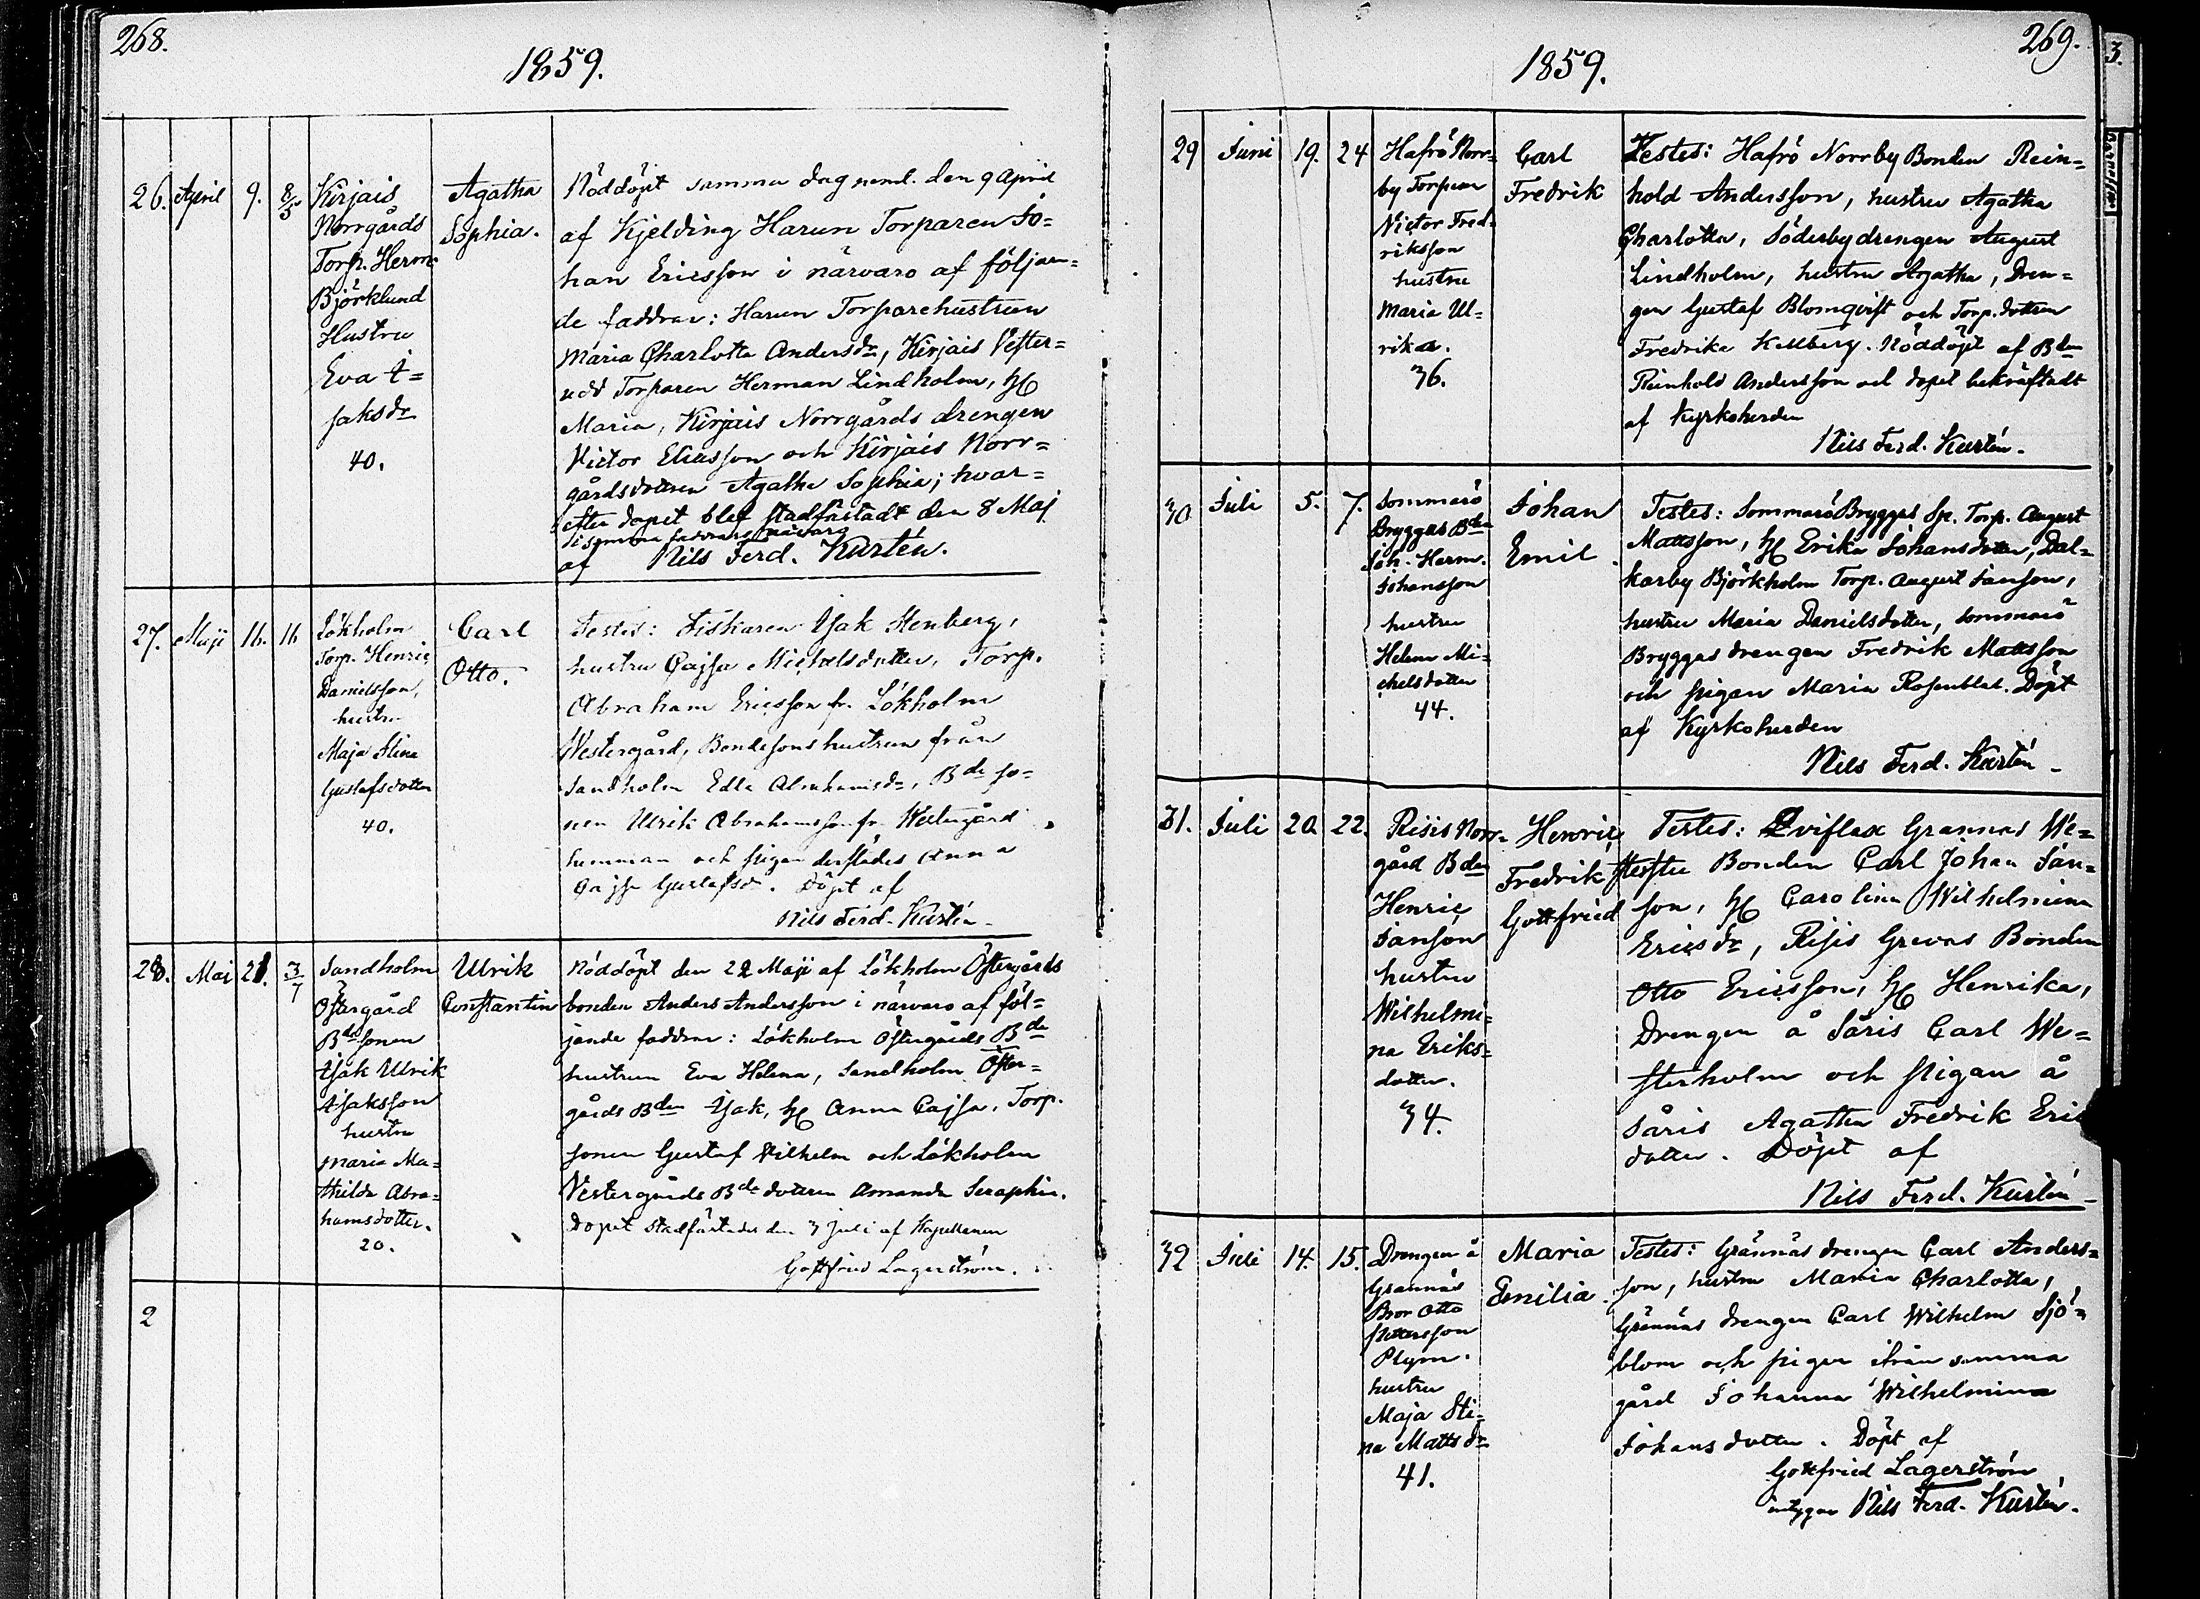 268.
1859.
26. April 9. 8/5
Kirjais
Norrgårds
Torp. Herm.
Björklund
Hustru
Eva I=
saksdr
40.
Agatha
Sophia.
Nöddöpt samma dag neml. den 9 April
af Kjelding Harun Torparen Jo=
han Ericsson i närvaro af följan=
de faddrar: Harun Torparehustrun
Maria Charlotta Andersdr, Kirjais Vester=
udd Torparen Herman Lindholm, H
Maria, Kirjais Norrgårds drengen
Victor Eliasson och Kirjais Norr=
gårdsdottren Agatha Sophia; hvar=
efter dopet blef stadfästadt den 8 Maj
i samma faddrars närvaro
af Nils Ferd. Kurtén.
27. Maji 16. 16
Lökholm
Torp. Henric
Danielsson,
hustru
Maja Stina
Gustafsdotter
40.
Carl
Otto.
Testes: Fiskaren Isak Stenberg,
hustru Cajsa Michelsdotter, Torp.
Abraham Ericsson fr. Lökholm
Westergård, Bondesonshustrun från
Sandholm Edla Abrahamsdr, Bde so=
nen Ulrik Abrahamsson fr. Westergård
hemman och pigan derstädes Anna
Cajsa Gustafsdr. Döpt af
Nils Ferd. Kurtén.
28. Mai 21. 3/7
Sandholm
Östergård
Bdesonen
Isak Ulrik
Isaksson
hustru
Maria Ma=
thilda Abra=
hamsdotter.
20.
Ulrik
Constantin
Nöddöpt den 22 Maji af Lökholm Östergårds
bonden Anders Andersson i närvaro af föl=
jande faddrar: Lökholm Östergårds Bde
hustrun Eva Helena, Sandholm Öster=
gårds Bden Isak, H Anna Cajsa, Torp.
sonen Gustaf Vilhelm och Lökholm
Vestergårds Bdedottren Amanda Seraphia.
Dopet stadfästades den 3 Juli af Kapellanen
Gottfried Lagerström.
2
269.
1859.
29 Juni 19. 24
Hafrö Norr=
by Torparn
Victor Fred=
riksson
hustru
Maria Ul=
rika.
36.
Carl
Fredrik
Testes: Hafrö Norrby Bonden Rein=
hold Andersson, hustru Agatha
Charlotta, Söderby drengen August
Lindholm, hustru Agatha, Dren=
gen Gustaf Blomqvist och Torp.dottren
Fredrika Kellberg. Nöddöpt af Bden
Reinhold Andersson och dopet bekräftadt
af Kyrkoherden
Nils Ferd. Kurtén.
30 Juli 5. 7.
Sommarö
Bryggas Bden
Joh. Herm.
Johansson
hustru
Helena Mi=
chelsdotter
44.
Johan
Emil.
Testes: Sommarö Bryggas Sp. Torp. August
Mattsson, H Erika Johansdotter, Dal=
karby Björkholm Torp. August Janson,
hustru Maria Danielsdotter, Sommarö
Bryggas drengen Fredrik Mattsson
och pigan Maria Rosenblad. Döpt
af Kyrkoherden
Nils Ferd. Kurtén
31. Juli 20. 22.
Risis Norr=
gård Bden
Henric
Janson
hustru
Wilhelmi=
na Eriks=
dotter.
34.
Henric
Fredrik
Gottfried
Testes: Qviflax Grannas We=
Bonden Carl Johan Jan=
son, H Carolina Wilhelmina
Ericsdr, Risis Grevas Bonden
Otto Ericsson, H Henrika,
Drengen å Såris Carl We=
sterholm och pigan å
Såris Agatha Fredrik Eric
dotter. Döpt af
Nils Ferd. Kurtén
32 Juli 14. 15.
Drengen å
Grännäs
Bror Otto
Pettersson
Plym.
hustru
Maja Sti=
na Mattsdr
41.
Maria
Emilia.
Testes: Grännäs drengen Carl Anders=
son, hustru Maria Charlotta,
Grännäs drengen Carl Wilhelm Sjö=
blom och pigan ifrån samma
gård Johanna Wilhelmina
Johansdotter. Döpt af
Gottfried Lagerström
intygar Nils Ferd. Kurtén.
3.